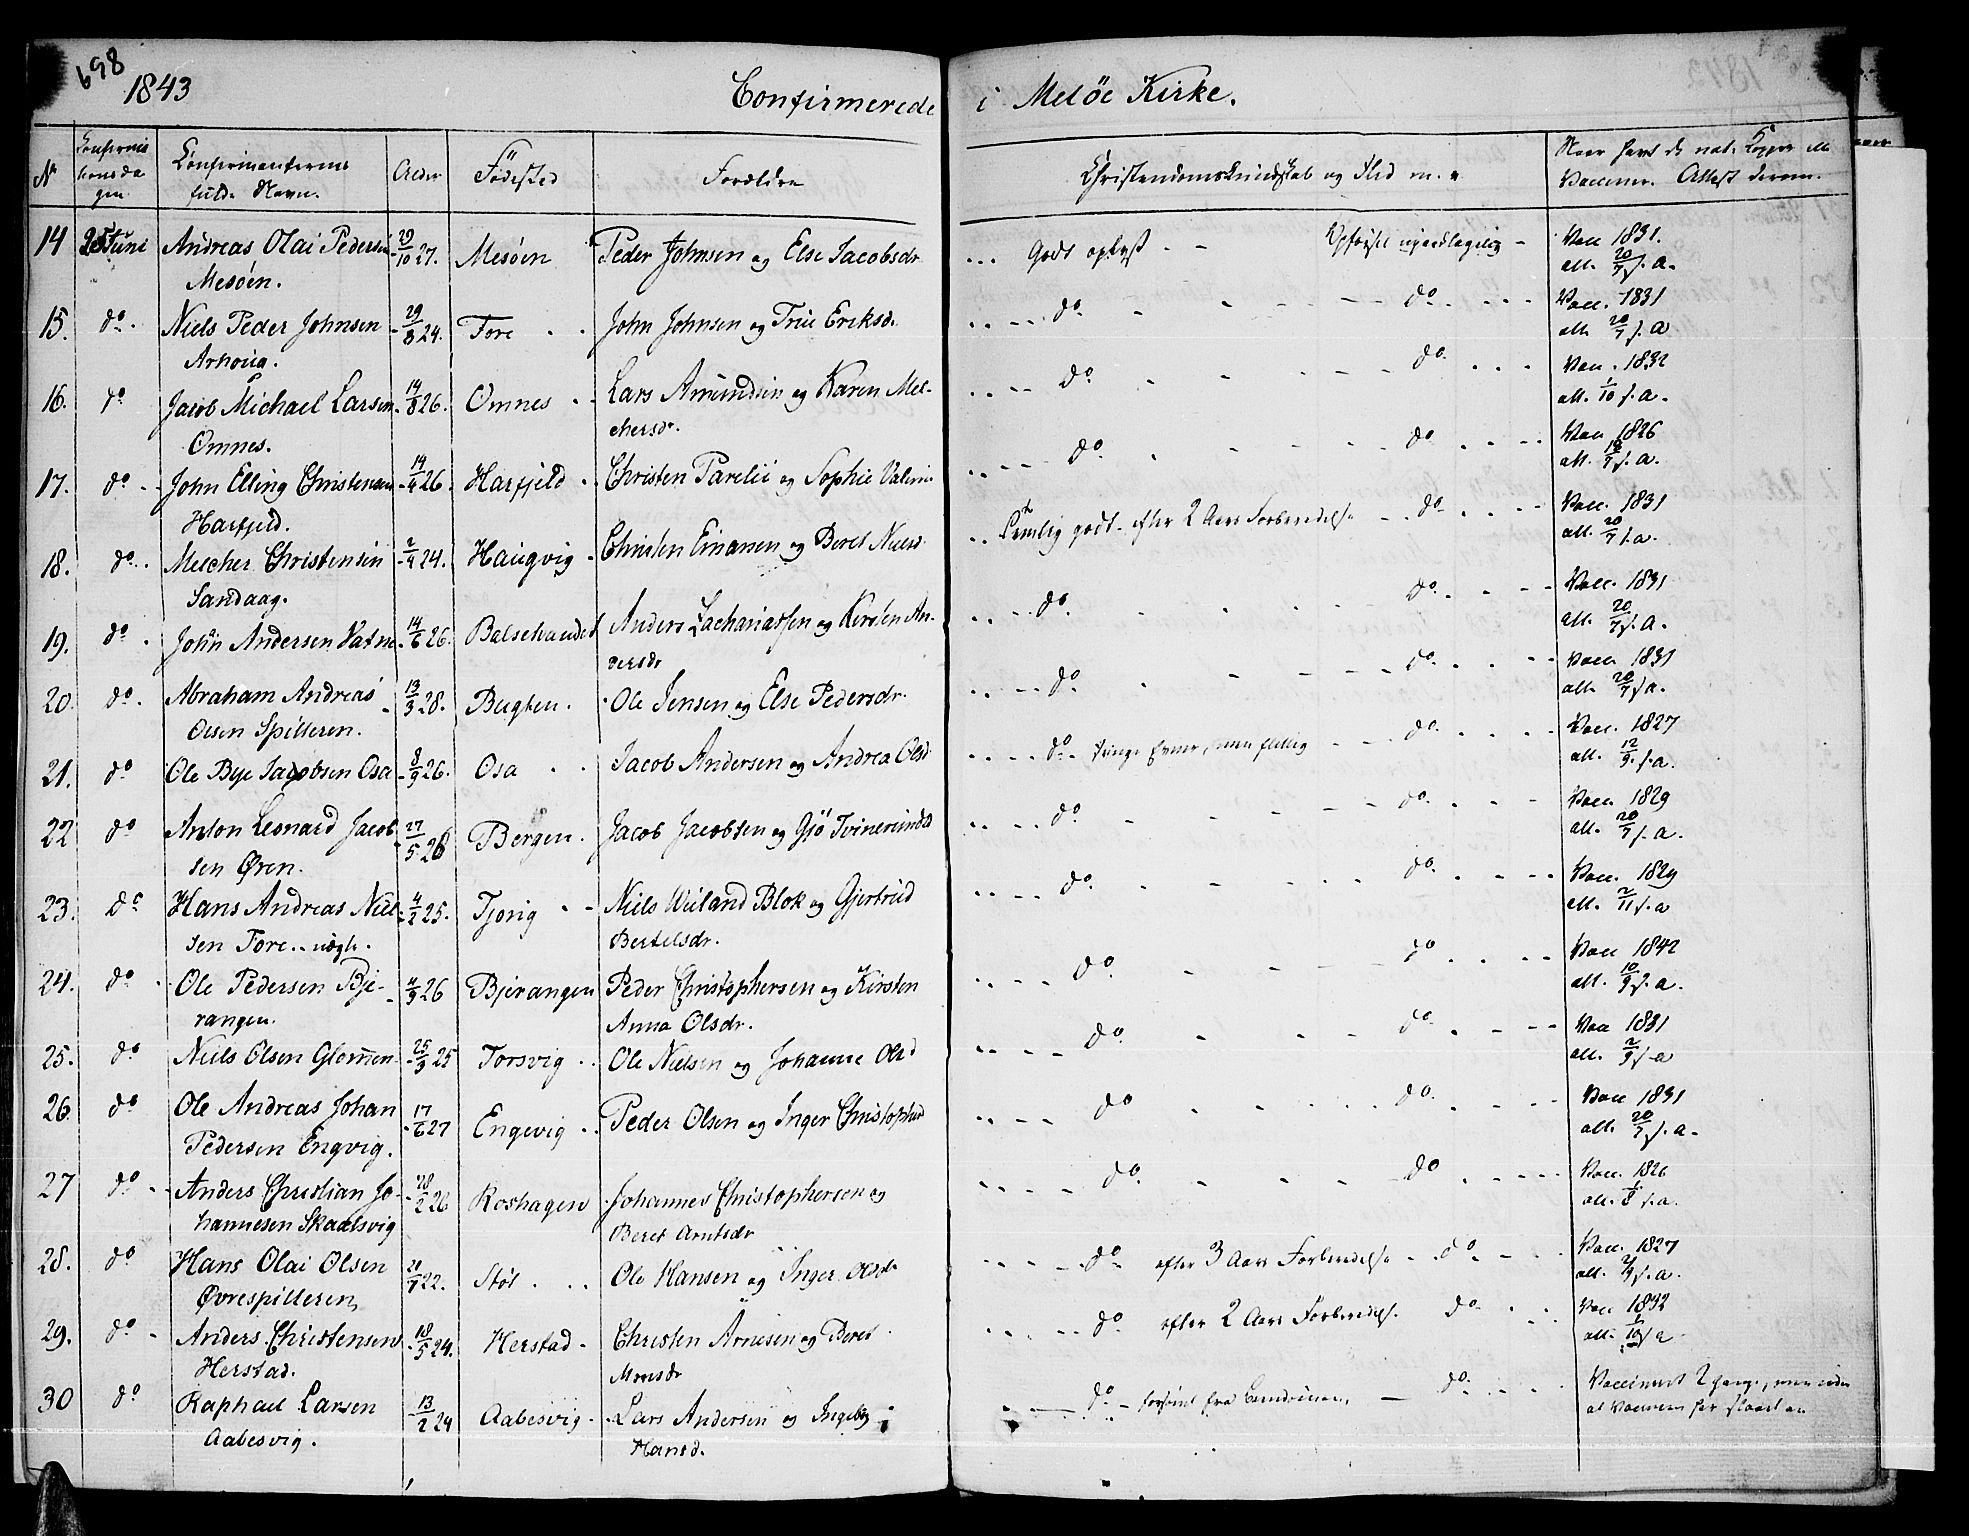 698
1843
Confirmerede i Melöe Kirke.
No
Confirmationsdagen
Confirmanternes fulde Navn.
Alder
Födested
Foreldre
Christendomskundskab og Flid m. v.
Naar havt de nat. Kopper ell. Vaccinen. Attest derom.
14 25 Juni Andreas Olai Pedersen 29/10 27. Mesöen Peder Johnsen og Else Jacobsdr. Godt oplyst Opförsel Vacc 1831.
Mesöen. att. 20/7 s. a.
15. do. Niels Peder Johnsen 29/8 24. Fore John Johnsen og Trine Eriksd. do. do. Vacc. 1831
Arhoug. att. 20/7 s. a
16. do Jacob Michael Larsen 14/8 26. Omnes Lars Amundsen og Karen Mel- do. do. Vacc. 1832
Omnes. chersdr. att. 1/10 s. a.
17. do. John Elling Christensen 14/4 26. Harfjeld Christen Parelii og Sophie do. do Vacc 1826
Harfjeld. att. s. a.
18. do. Melcher Christensen 2/4 24. Haugvig Christen Einarsen og Beret Nielsd. Temlig godt efter 2 Aars Forberedelse do. Vacc. 1831
Sandaag. att. 20/7 s. a.
19. do. John Andersen Vatne 14/6 26. Anders Zachariassen og Kirsten An- do. do. Vacc. 1831
dersdr att. 20/7 s. a.
20. do. Abraham Andreas 13/3 28. Bugten. Ole Jensen og Else Pedersdr. do. do. Vacc. 1831
Olsen Spilderen. att. 20/7 s a.
21. do Ole Bye Jacobsen Osa 8/9 26. Osa Jacob Andersen og Andrea Olsd. do. tunge Evner, men flittig do. Vacc. 1827
att. 12/9. s. a.
22 do Anton Leonard Jacob 27/5 26 Bergen. Jacob Jacobsen og Gjö do do. Vacc. 1829
sen Øren. att. 20/7 s. a.
23. do Hans Andreas Niel- 4/2 25. Tjorig Niels Weiland Blok og Gjertrud do. do. Vacc. 1829
sen Fore. Bertelsdr. att. 2/11 s. a
24. do Ole Pedersen Bje- 4/9 26 Bjerangen Peder Christophersen og Kirsten do. do Vacc 1842
rangen. Anna Olsdr. att. 10/9 s. a.
25. do Niels Olsen Glommen 25/3 25 Torsvig Ole Nielsen og Johanne Olsd do. do. Vacc 1831
att. 2/9 s a
26. do Ole Andreas Johan 17/6 27 Engevig Peder Olsen og Inger Christophd do do. Vacc 1831
Pedersen Engvig. att. 20/7 s. a.
27 do. Anders Christian Jo- 28/2 26 Roshagen Johannes Christophersen og do. do Vacc. 1826
hannesen Skaalsvig Beret Arntsdr att. s. a.
28. do Hans Olai Olsen 20/7 22. Stöt Ole Hansen og Inger Olsdr do. efter 3 Aars Forberedelse do. Vacc. 1827
Øvrespilleren att. s. a.
29. do. Anders Christensen 18/5 24. Herstad Christen Arnesen og Beret do. efter 2 Aars Forberedels. do. Vacc 1832
Herstad. Monsdr att. 1/10 s a
30 do Raphael Larsen 13/2 24 Aabesvig Lars Andersen og Ingeborg do. do. Vaccineret 2 gange, men
Aabesvig. Hansd. at Vaccinen har slaaet an